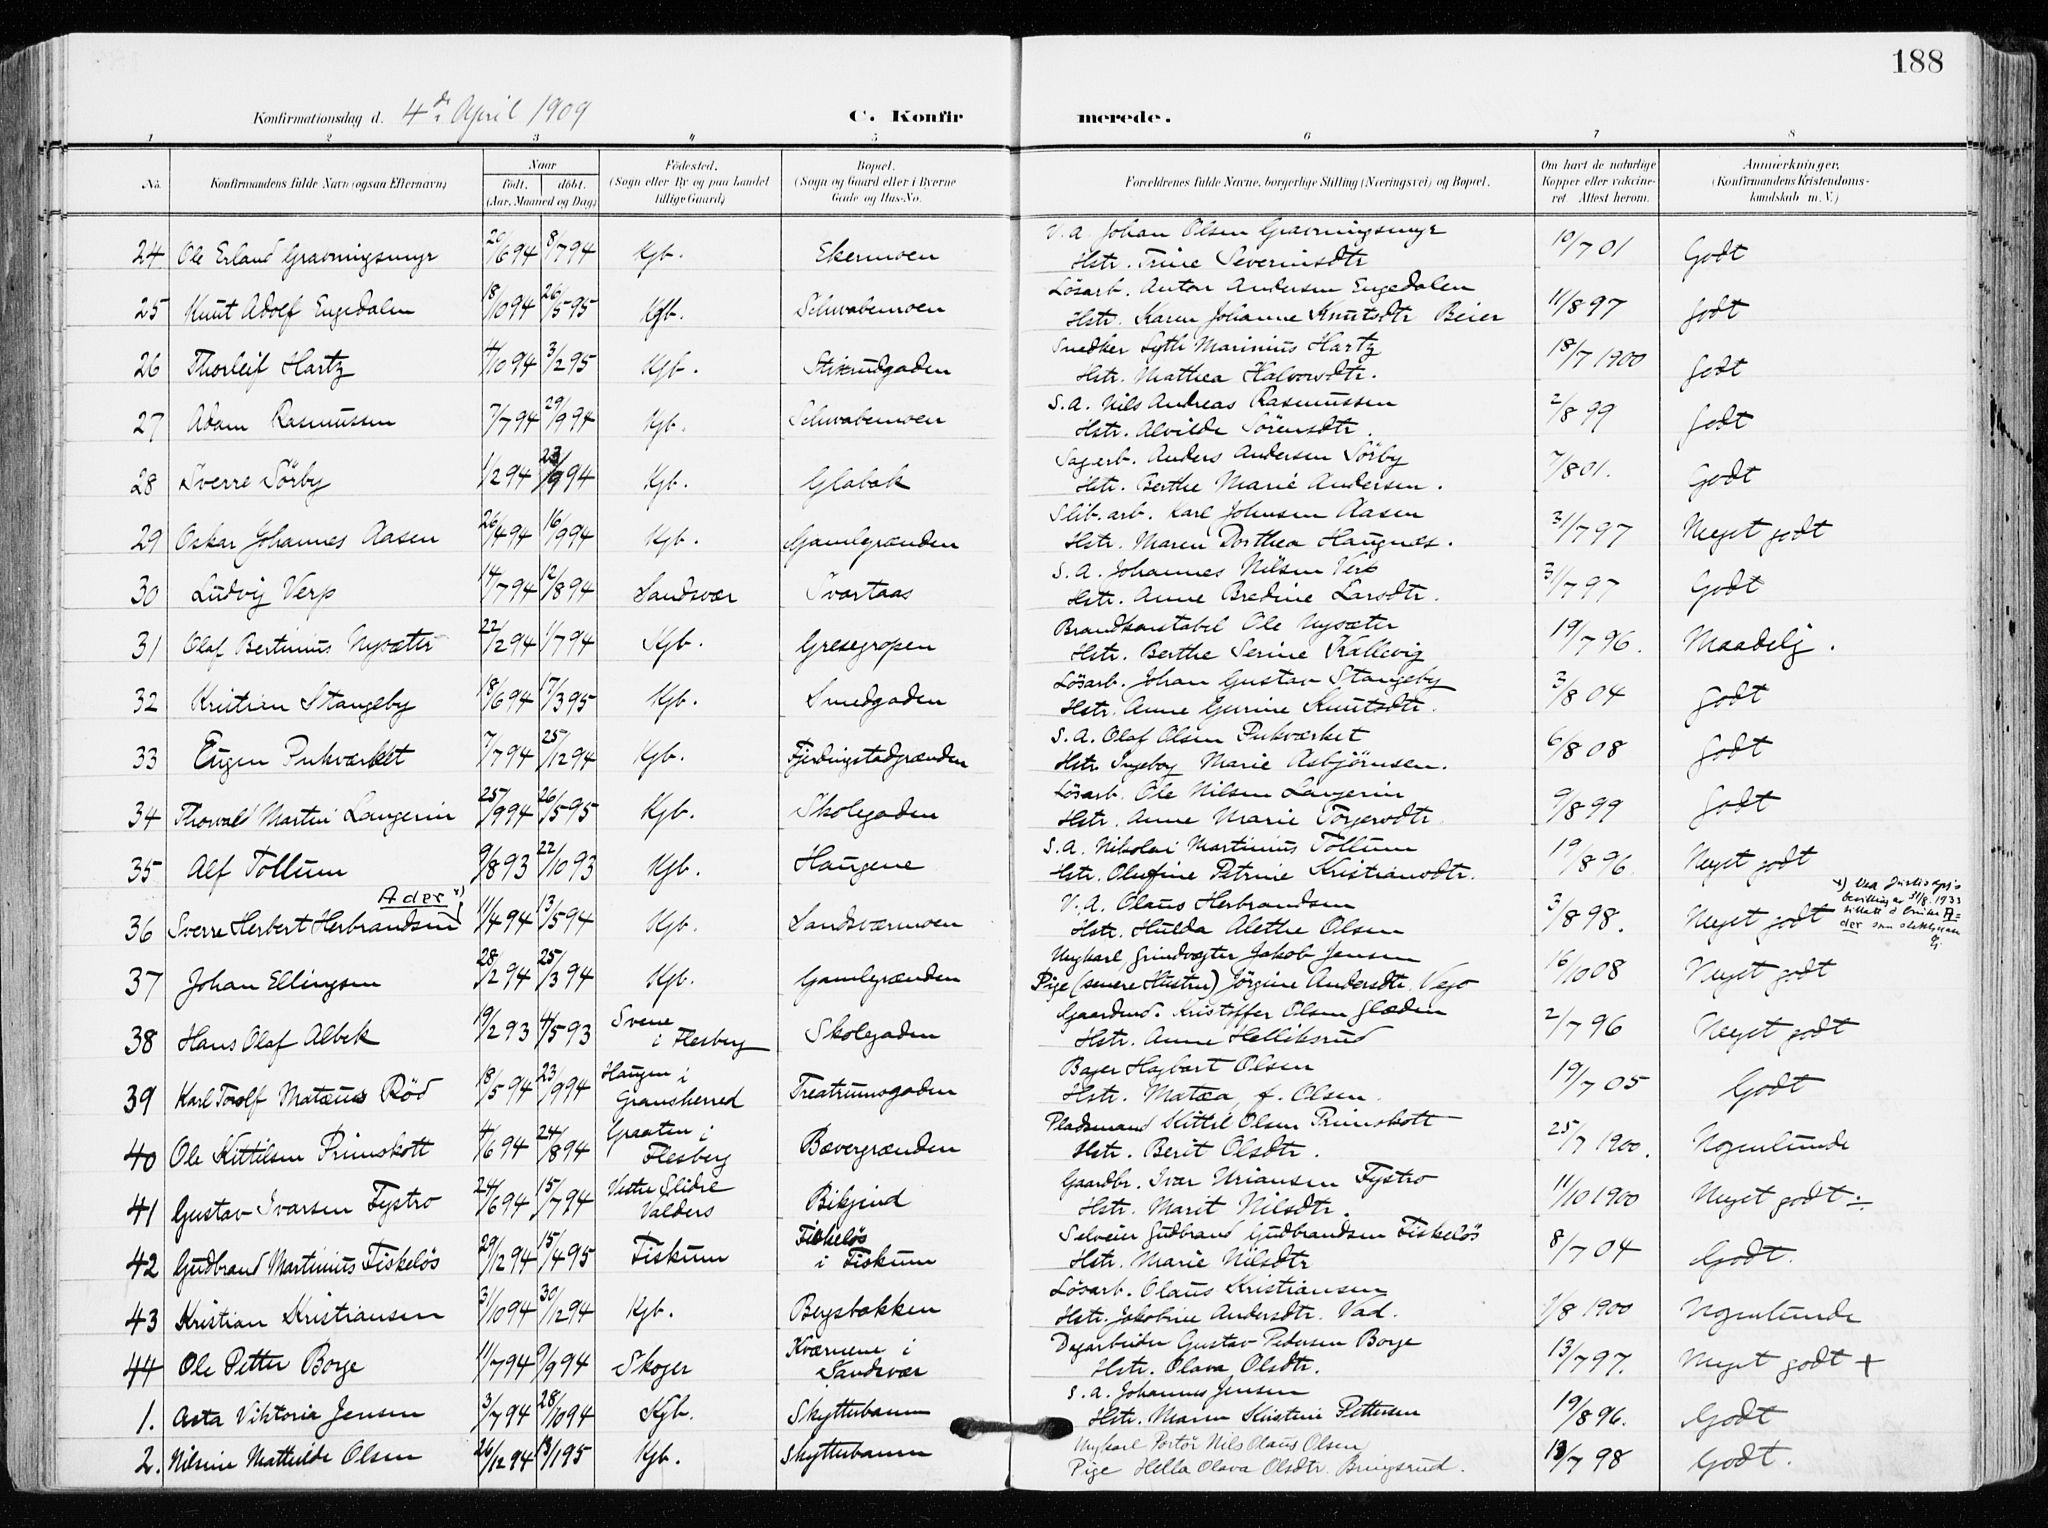 188
Konfirmationsdag d. 4de April 1909 C. Konfirmerede.
1 2 3 4 5 6 7 8
No. Konfirmandens fulde Navn (ogsaa Efternavn) Naar født. døbt. (Aar, Maaned og Dag) Fødested. (Sogn eller By og paa Landet tillige Gaard) Bopæl. (Sogn og Gaard eller i Byerne Gade og Hus-No. Forældrenes fulde Navne, borgerlige Stilling (Næringsvei) og Bopæl. Om havt de naturlige Kopper eller vakcineret. Attest herom. Anmærkninger. (Konfirmandens Kristendomskundskab m. V.)
V. a. Johan Olsen Gravningsmyr
24 Ole Erland Gravningsmyr 20/6 94 8/7 94 Kgb. Ekermoen Hstr. Trine Severinsdtr 10/7 01 Godt
Løsarb. Anton Andersen Engedalen
25 Knut Adolf Engedalen 18/10 94 26/5 95 Kgb. Schwabemoen Hstr. Karen Johanne Knutsdtr Beier 11/8 97 Godt
Snedker Lyth Marinius Hartz
26 Thorleif Hartz 4/10 94 3/2 95 Kgb. Stikrudgaden Hstr. Mathea Halvorsdtr. 18/7 1900 Godt
S. A. Nils Andreas Rasmussen
27 Adam Rasmussen 7/7 94 29/9 94 Kgb. Schwabemoen Hstr. Alvilde Sörensdtr. 2/8 99 Godt
Sagarb. Anders Andersen Sörby
28 Sverre Sörby 1/2 94 23/9 94 Kgb. Glabak Hstr. Berthe Marie Andersen. 7/8 01. Godt
Slib. arb. Karl Johnsen Aasen
29 Oskar Johannes Aasen 26/4 94 16/9 94 Kgb. Gamlegrænden Hstr. Maren Dorthea Haugnæs. 31/7 97 Meget godt
S. A. Johannes Nilsen Verp
30 Ludvig Verp 14/7 94 12/8 94 Sandsvær Svartaas Hstr. Anne Bredine Larsdtr. 31/7 97 Godt
Brandkonstabel Ole Nysæter
31 Olaf Bertinius Nysæter 22/2 94 1/7 94 Kgb. Gresegropen Hstr. Berthe Serine Kallevig 19/7 96. Maadelig.
Lösarb. Johan Gustav Stangeby
32 Kristian Stangeby 18/6 94 17/3 95 Kgb. Smedgaden Hstr. Anne Gurine Knutsdtr. 3/8 04 Godt
S. A. Olaf Olsen Pukværket
33 Eugen Pukværket 7/7 94 25/12 94 Kgb. Fjerdingstadgrænden Hstr. Ingeborg Marie Asbjörnsen. 6/8 08 Godt
Lösarb. Ole Nilsen Langerin
34 Thorvald Martin Langerin 25/9 94 26/5 95 Kgb. Skolegaden Hstr. Anne Marie Torgersdtr. 9/8 99 Godt
S. A. Nikolai Martinius Tollum
35 Alf Tollum 9/8 93 22/10 93 Kgb. Haugene Hstr. Olufine Petrine Kristiansdtr. 19/8 96. Meget godt
Ader x) V. A. Olaus Herbrandsen
36 Sverre Herbert Herbrandsen 11/4 94 13/5 94 Kgb. Sandsværmoen Hstr. Hulda Alethe Olsen 3/8 98. Meget godt
x) Ved Justisdep's
bevilling av 31/8. 1933
tillatt å bruke A=
der som slektsnavn
Ungkarl, Grindvogter Jakob Jensen
37 Johan Ellingsen 28/2 94 25/3 94 Kgb. Gamlegrænden Pige (senere Hustru) Jörgine Andersdtr. Vejo 16/10 08 Meget godt
Gaardmd. Kristoffer Olsen Glæden
38 Hans Olaf Albek 19/2 93 4/5 93 Svene i Flesberg Skolegaden Hstr. Anne Helliksrud 2/7 96 Meget godt
Bager Hagbart Olsen
39 Karl Torolf Matæus Röd 18/5 94 23/9 94 Haugen i Gransherred Treatrumsgaden Hstr. Matæa, f. Olsen. 19/7 05 Godt
Pladsmand Kittil Olsen Primskott
40 Ole Kittilsen Primskott 4/6 94 24/8 94 Graaten i Flesberg Bævergrænden Hstr. Berit Olsdtr. 25/7 1900. Nogenlunde
Gaardbr. Ivar Uriansen Fystro
41 Gustav Ivarsen Fystro 24/6 94 15/7 94 Vestre Slidre Valders Bikjend Hstr. Marit Nilsdtr. 11/10 1900 Meget godt ÷
Selveier Gudbrand Gudbrandsen Fiskelös
42 Gudbrand Martinius Fiskelös 29/12 94 15/4 95 Fiskum Fiskelös i Fiskum Hstr. Marie Nilsdtr 8/7 04 Godt.
Lösarb. Olaus Kristiansen
43 Kristian Kristiansen 31/10 94 30/12 94 Kgb. Bergsbakken Hstr. Jakobine Andersdtr. Vad. 7/8 1900 Nogenlunde
Dagarbeider Gustav Pedersen Borge
44 Ole Petter Borge 11/7 94 9/9 94 Skoger Kværnene i Sandsvær Hstr. Olava Olsdtr. 13/7 97. Meget godt +
S. A. Johannes Jensen
1. Asta Viktoria Jensen 3/7 94 28/10 94 Kgb. Skytterbanen Hstr. Maren Kristine Pettersen 19/8 96. Godt
Ungkarl Portör Nils Olaus Olsen
2. Nilsine Mathilde Olsen 26/12 94 13/1 95 Kgb. Skytterbanen Pige Hella Olava Olsdtr. Bringsrud. 13/7 98 Godt.